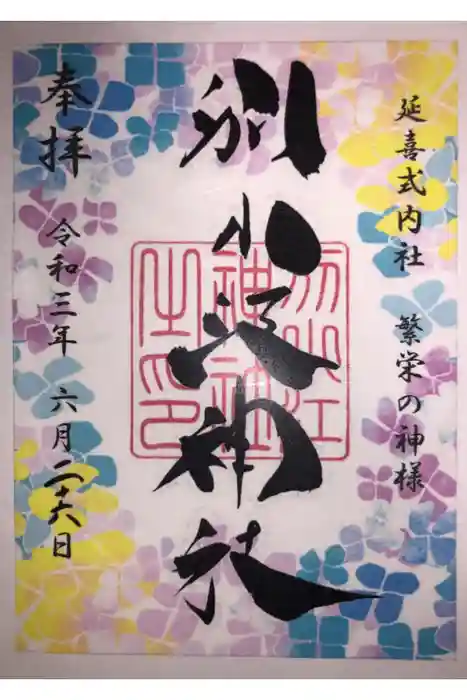 延喜式内社 繁栄の神様
別小江神社
別小江神社之印
奉拝 令和三年 六月二十六日